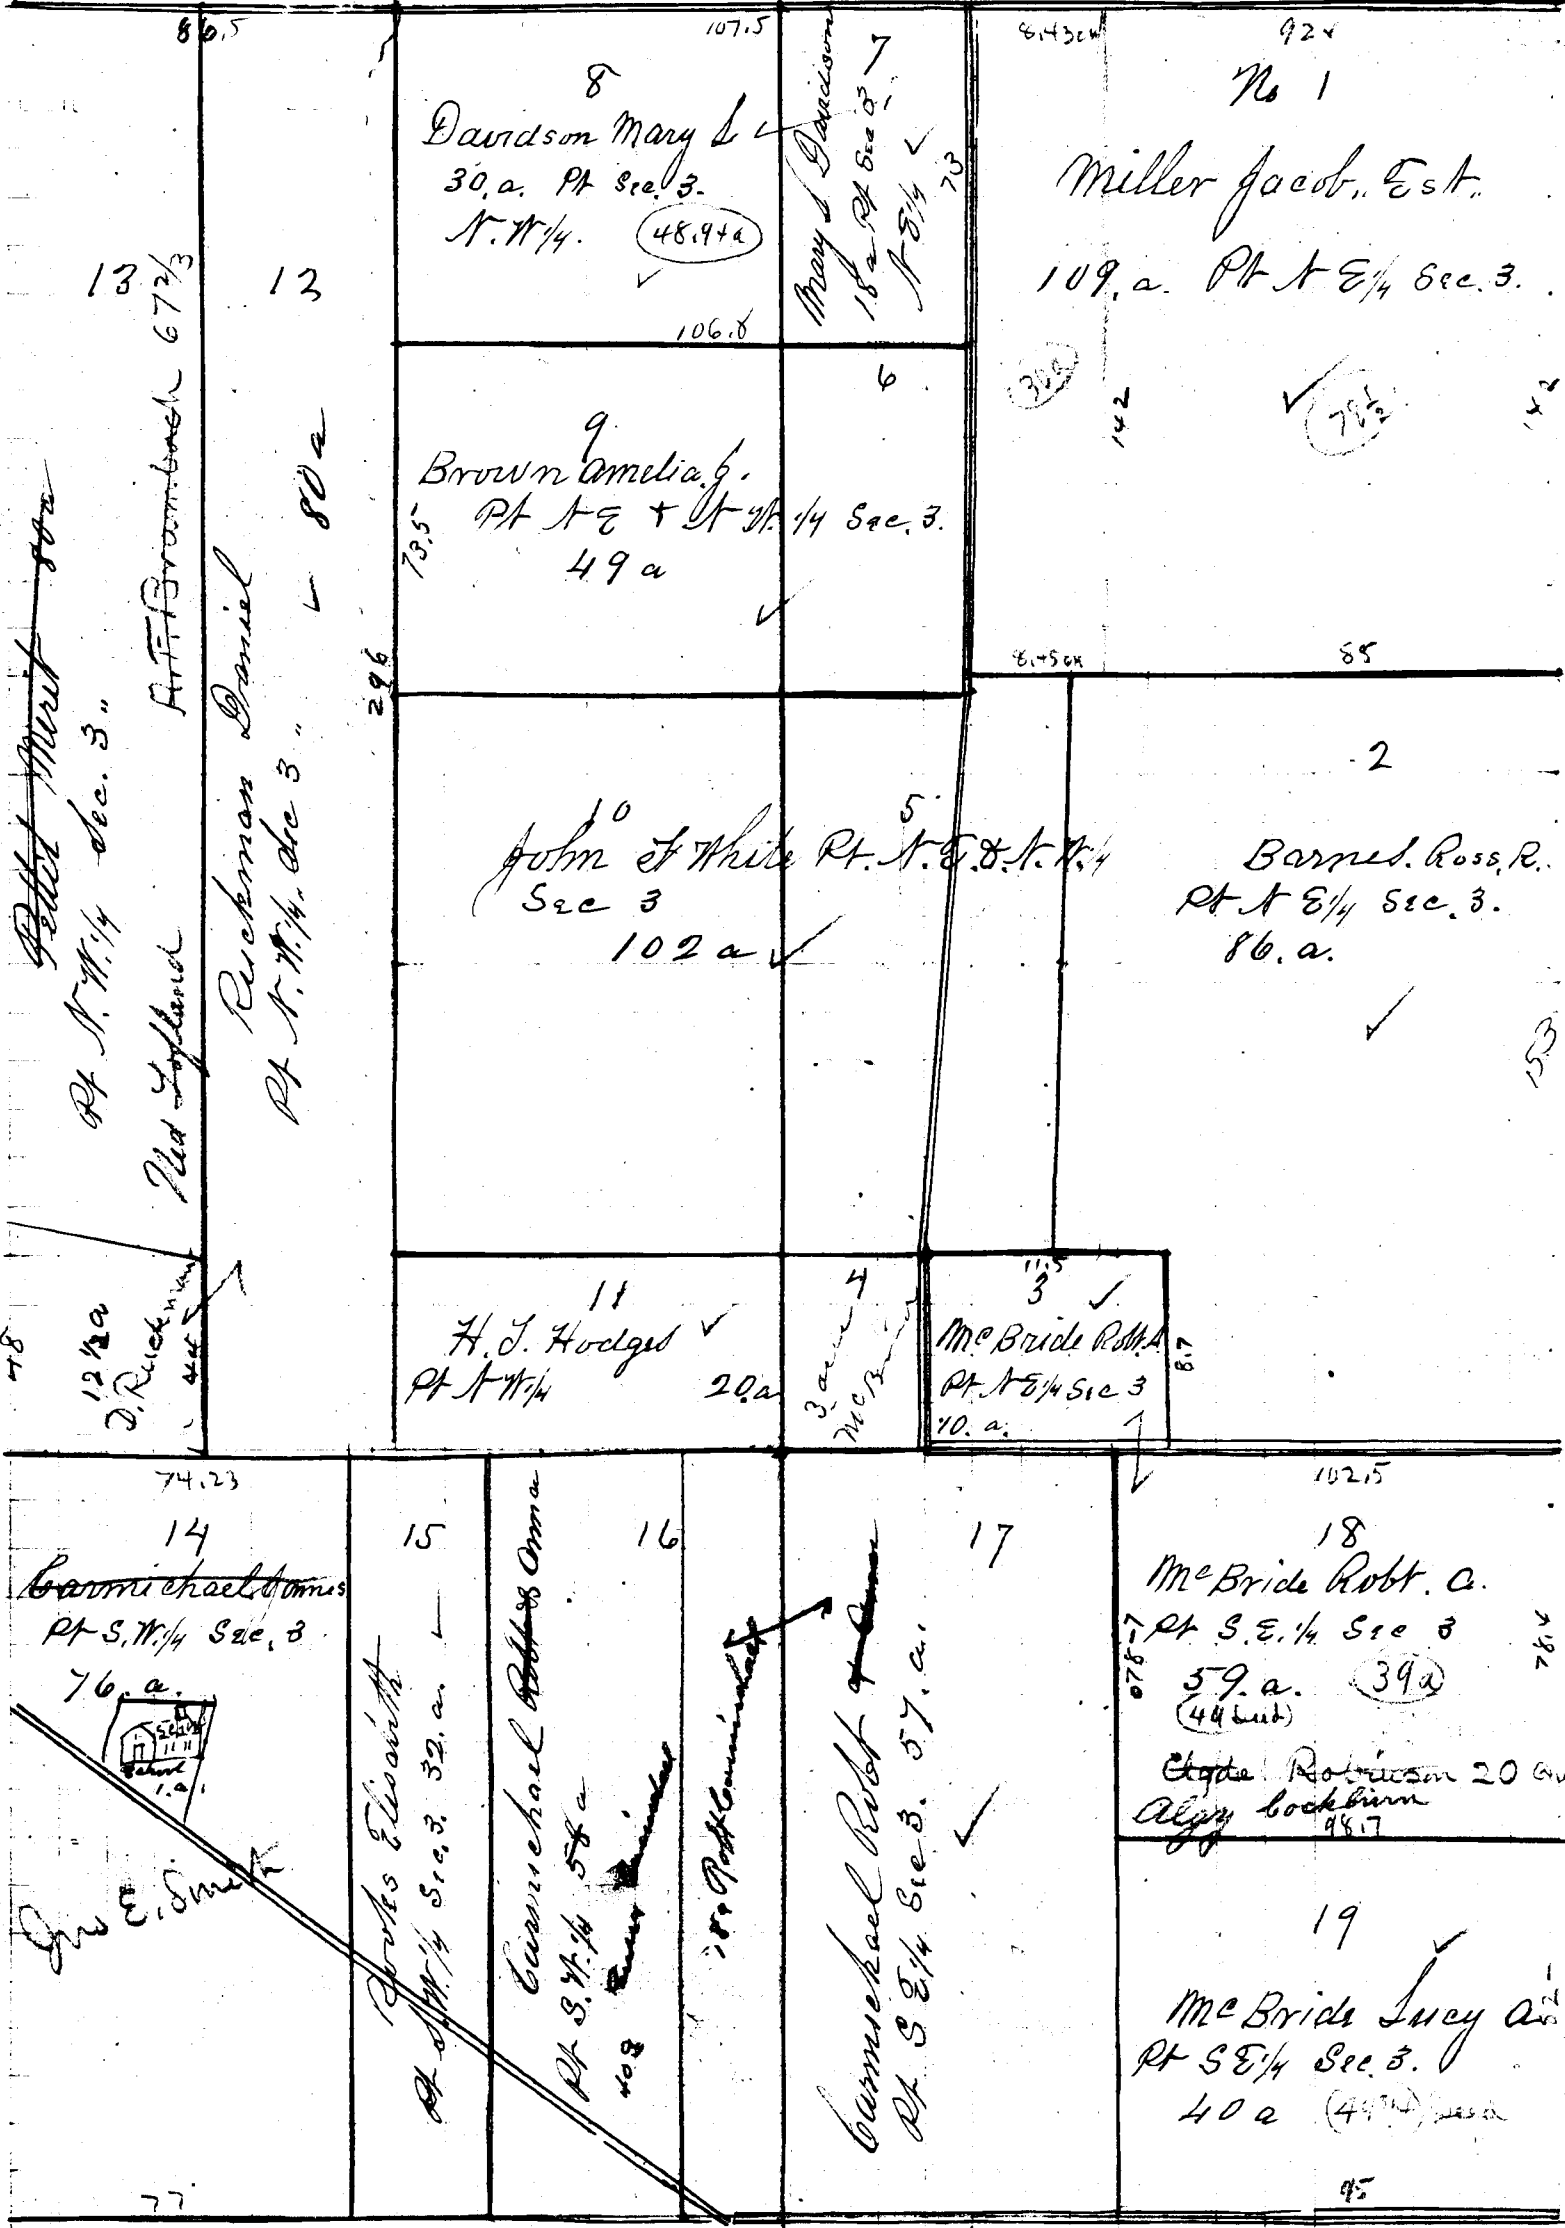 86.5
13
Pettet Merit 80a
Pt N.W. 1/4 Sec. 3 "
A.F. Brombach 67 2/3
Ned Lofland
48
12 1/2 a
D. Ruckman
44
12
Ruckman Daniel
Pt N.W. 1/4. Sec 3 "
80 a
296
107.5
8
Davidson Mary S
30. a. Pt Sec. 3.
N.W 1/4.
48.94a
106.8
7
Mary S Davidson
18 a Pt Sec 3,
N E 1/4
73
8.43ch
92
No 1
Miller Jacob. Est.
109. a. Pt N E 1/4 Sec. 3.
142
78 1/2
142
6
9
Brown Amelia. J.
Pt N E & N W. 1/4 Sec. 3.
49 a
73.5
8.45ch
85
10
5
John F White Pt. N.E. & N.W. 1/4
Sec 3
102 a
2
Barnes. Ross, R.
Pt N E 1/4 Sec. 3.
86. a.
153
11
H. J. Hodges
Pt N W 1/4 20.a
4
3 acres
McBride
11.5
3
McBride Robt. A
Pt N E 1/4 Sec 3
10. a.
8.7
74.23
14
Carmichael James
Pt S.W. 1/4 Sec. 3
76. a.
School
1. a.
Jno E. Smith
77
15
Elisabeth
Pt S W. 1/4 Sec. 3. 32. a.
16
Carmichael Anna
Pt S.W. 1/4 58 a
40a
18a Robt Carmichael
17
Carmichael Robt
Pt S E 1/4 Sec 3. 57. a.
102.5
18
McBride Robt. A.
Pt S.E. 1/4 Sec 3
59. a. 39a
78.4
Clyde Robinson 20 a
Algy Cockburn
98.7
19
McBride Lucy A
Pt S E 1/4 Sec. 3.
40 a
52
95